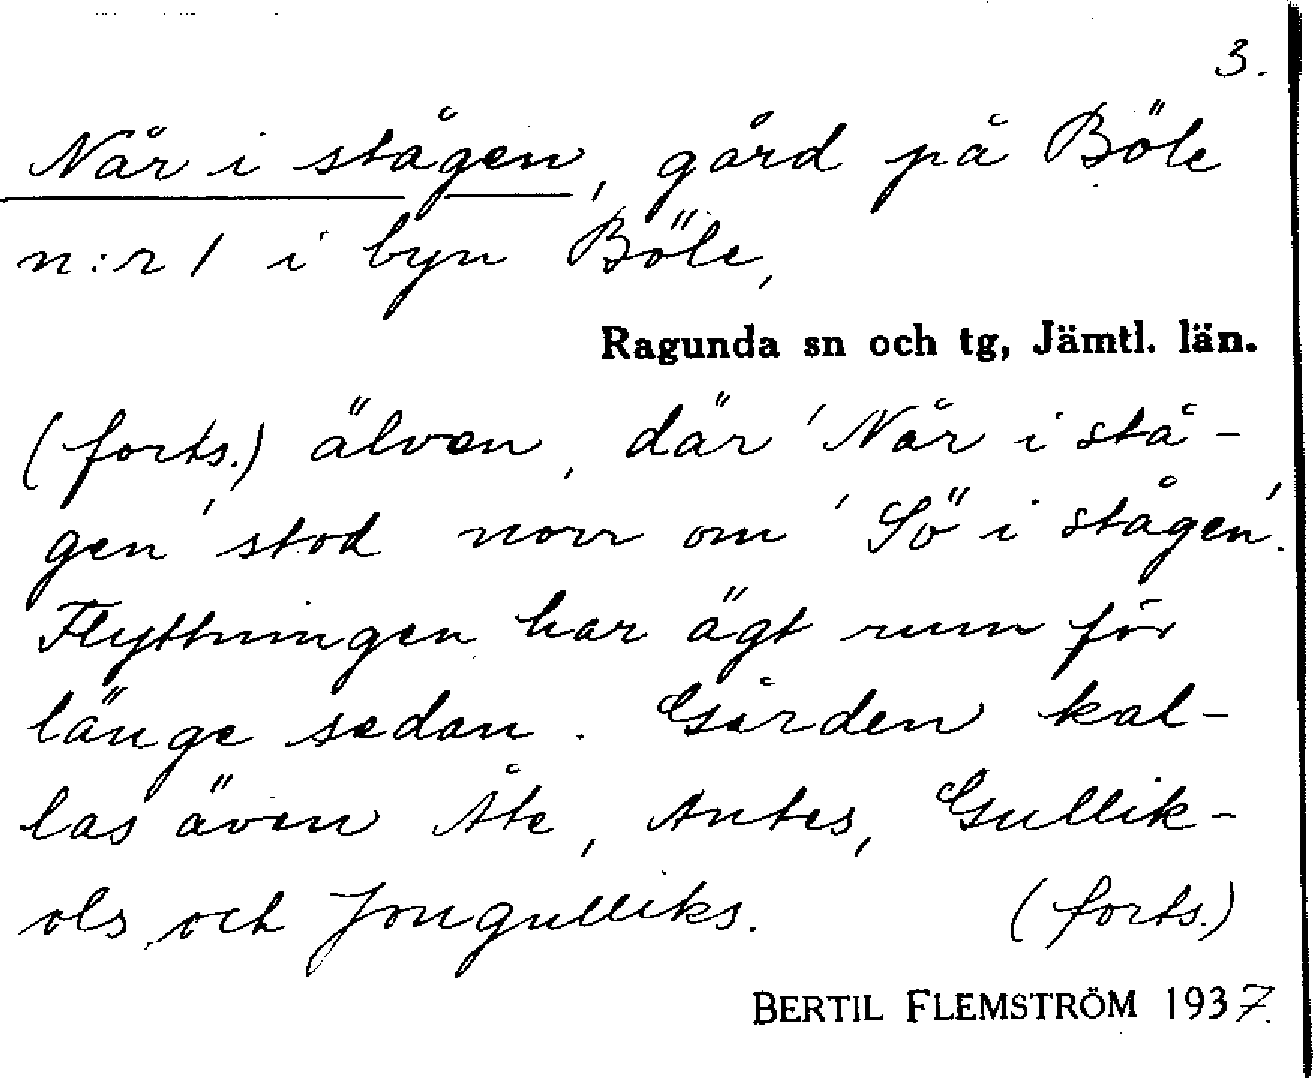 3.
Når i stågen, gård på Böle
n:r 1 i byn Böle,
Ragunda sn och tg, Jämtl. län.
(forts.) älven, där 'Når i stå-
gen' stod norr om 'Sö i stågen'.
Flyttningen har ägt rum för
länge sedan. Gården kal-
las även Åte, Antes, Gullik-
ols och Jongulliks. (forts.)
BERTIL FLEMSTRÖM 1937.